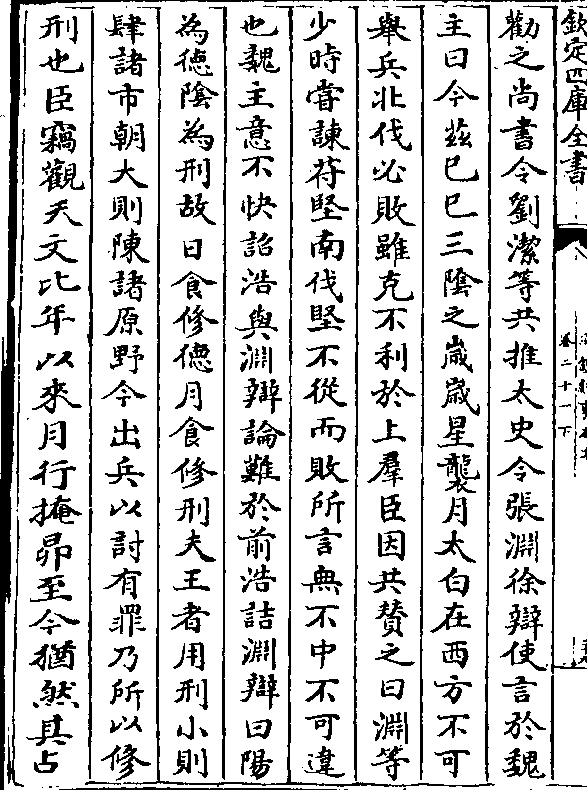 欽定四庫全書
卷二十一下
勸之尚書令劉潔等共推太史令張淵徐辯使言於魏
主曰今茲已巳三隂之嵗嵗星襲月太白在西方不可
舉兵北伐必敗雖克不利於上羣臣因共贊之曰淵等
少時嘗諫苻堅南伐堅不從而敗所言無不中不可違
也魏主意不快詔浩與淵辯論難於前浩詰淵辯曰陽
為徳隂為刑故日食修徳月食修刑夫王者用刑小則
肆諸市朝大則陳諸原野今出兵以討有罪乃所以修
刑也臣竊觀天文比年以來月行掩昴至今猶然其占